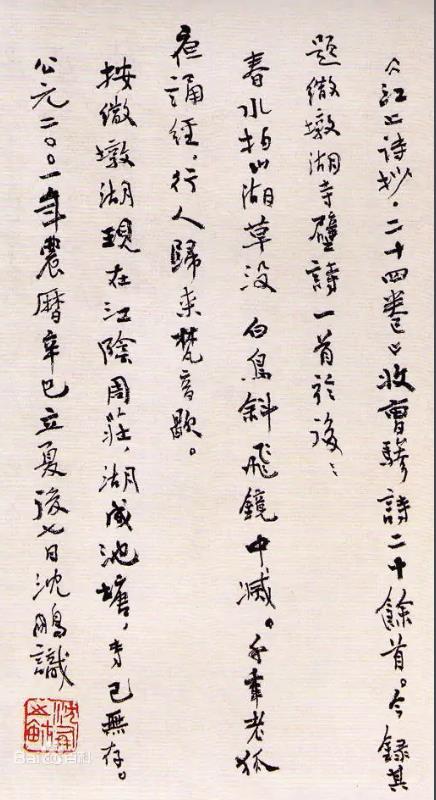 《江上诗抄·二十四卷》收曹驂詩二十餘首。今録其
題繳墩湖寺壁詩一首於後：
春水拍山湖草没 白鳥斜飛鏡中滅。千年老狐
夜誦經，行人歸来梵音歇。
按繳墩湖現在江陰周莊，湖成池塘，寺已無存。
公元二〇〇一年農曆辛巳立夏後七日沈鵬識
Baidu百科